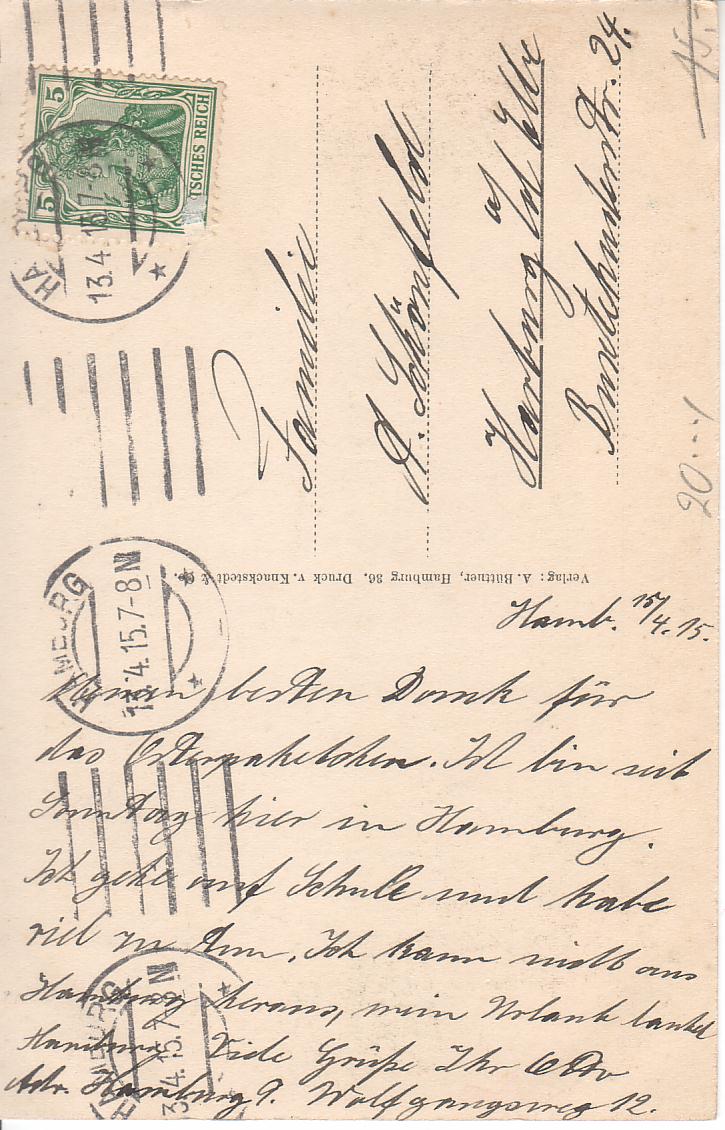 5 5
TSCHES REICH
HAMBURG
13.4.15.7-8 N
15.-
Familie
A. Schönfeld
Harburg a/ d Elbe
Buxtehuderstr. 24.
20.-
Verlag: A. Büttner, Hamburg 36. Druck v. Knackstedt & Co.
HAMBURG
13.4.15.7-8 N
Hamb. 15/4.15.
Meinen besten Dank für
das Osterpaketchen. Ich bin seit
Sonntag hier in Hamburg.
Ich gehe auf Schule und habe
viel zu tun. Ich kann nicht aus
Hamburg heraus, mein Urlaub lautet
Hamburg. Viele Grüße Ihr Otto
Adr. Hamburg 9. Wolfgangsweg 12.
HAMBURG
3.4.15.7-8 N